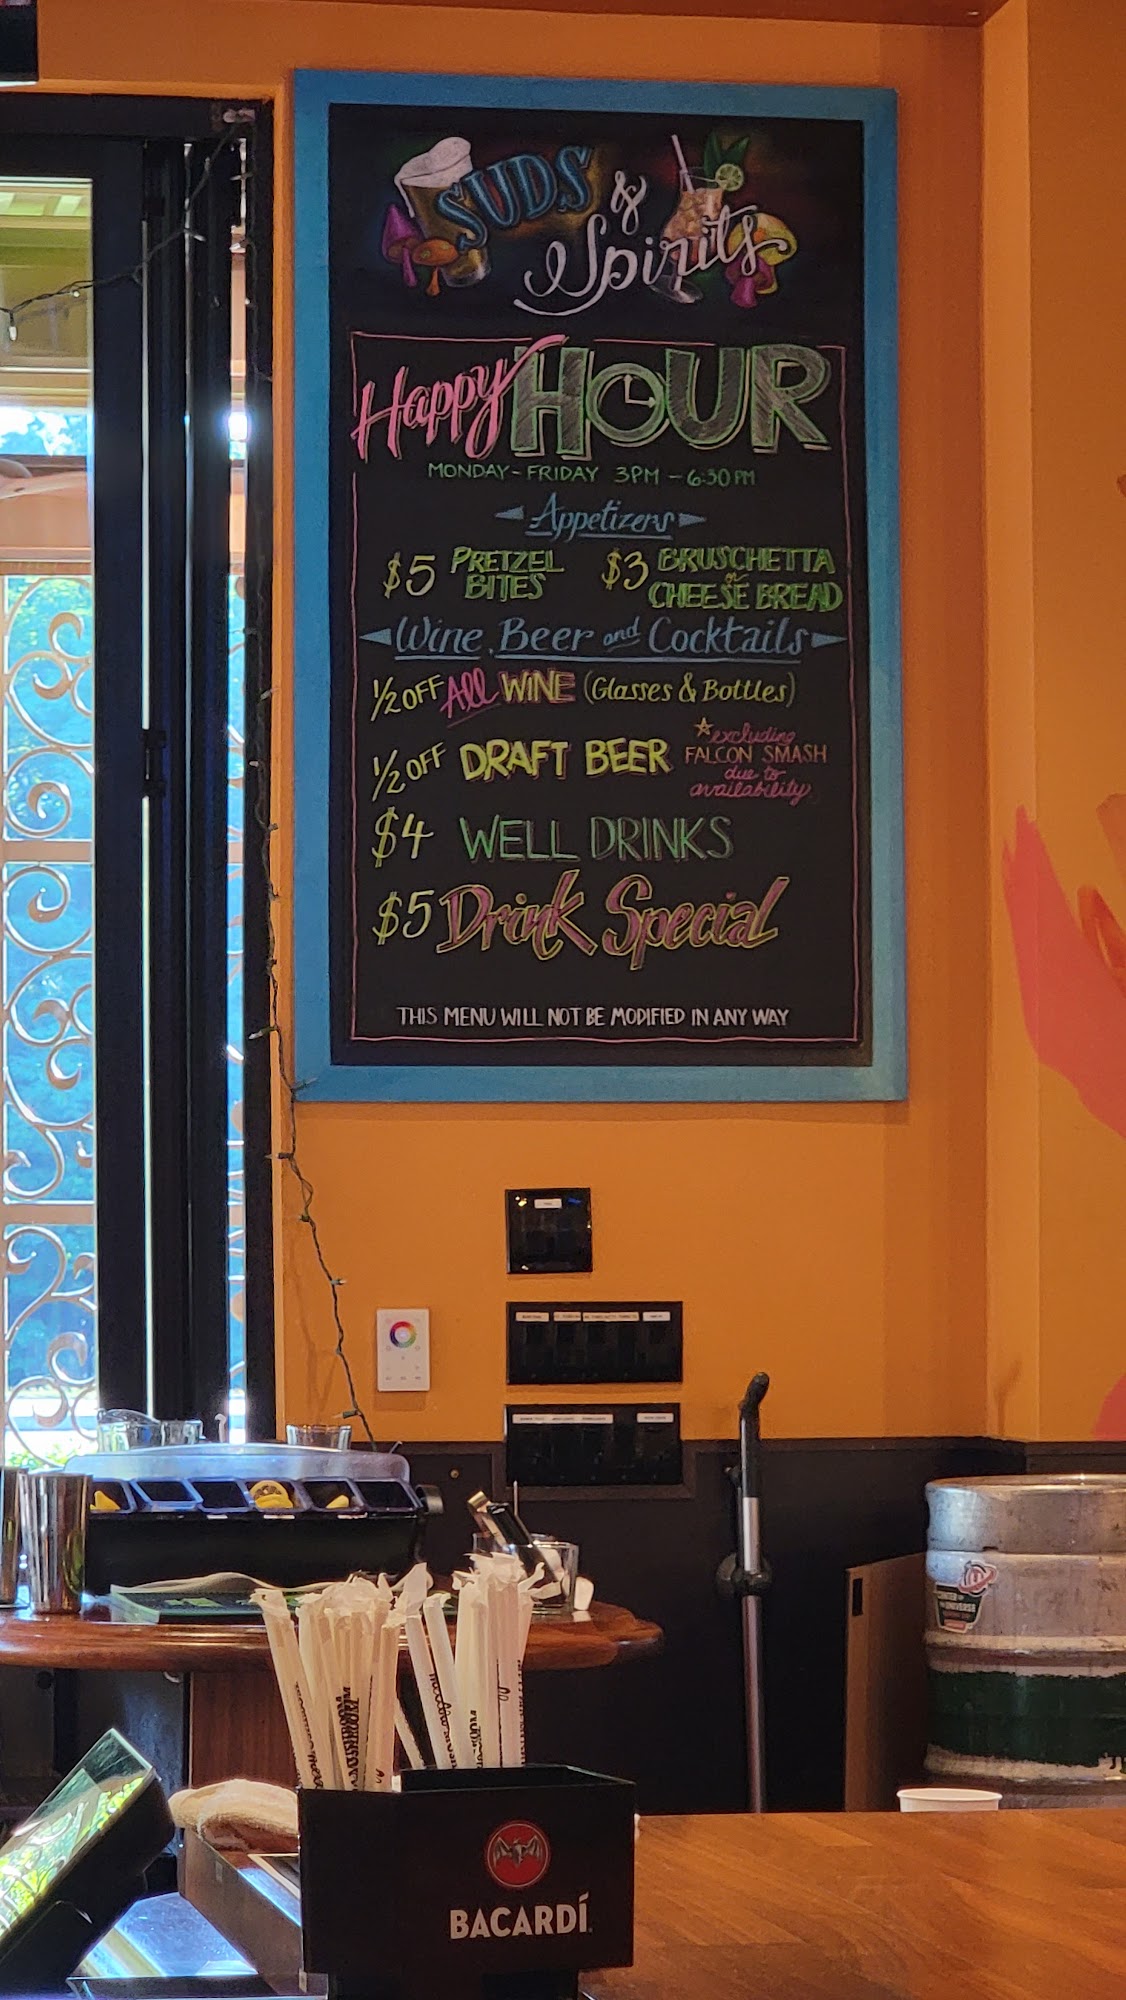 SUDS
&
Spirits
Happy HOUR
MONDAY - FRIDAY 3PM - 6:30 PM
Appetizers
$5 PRETZEL BITES
$3 BRUSCHETTA or CHEESE BREAD
Wine, Beer and Cocktails
1/2 OFF All WINE (Glasses & Bottles)
1/2 OFF DRAFT BEER
*excluding
FALCON SMASH
due to
availability
$4 WELL DRINKS
$5 Drink Special
THIS MENU WILL NOT BE MODIFIED IN ANY WAY
MUSHROOM
BACARDÍ